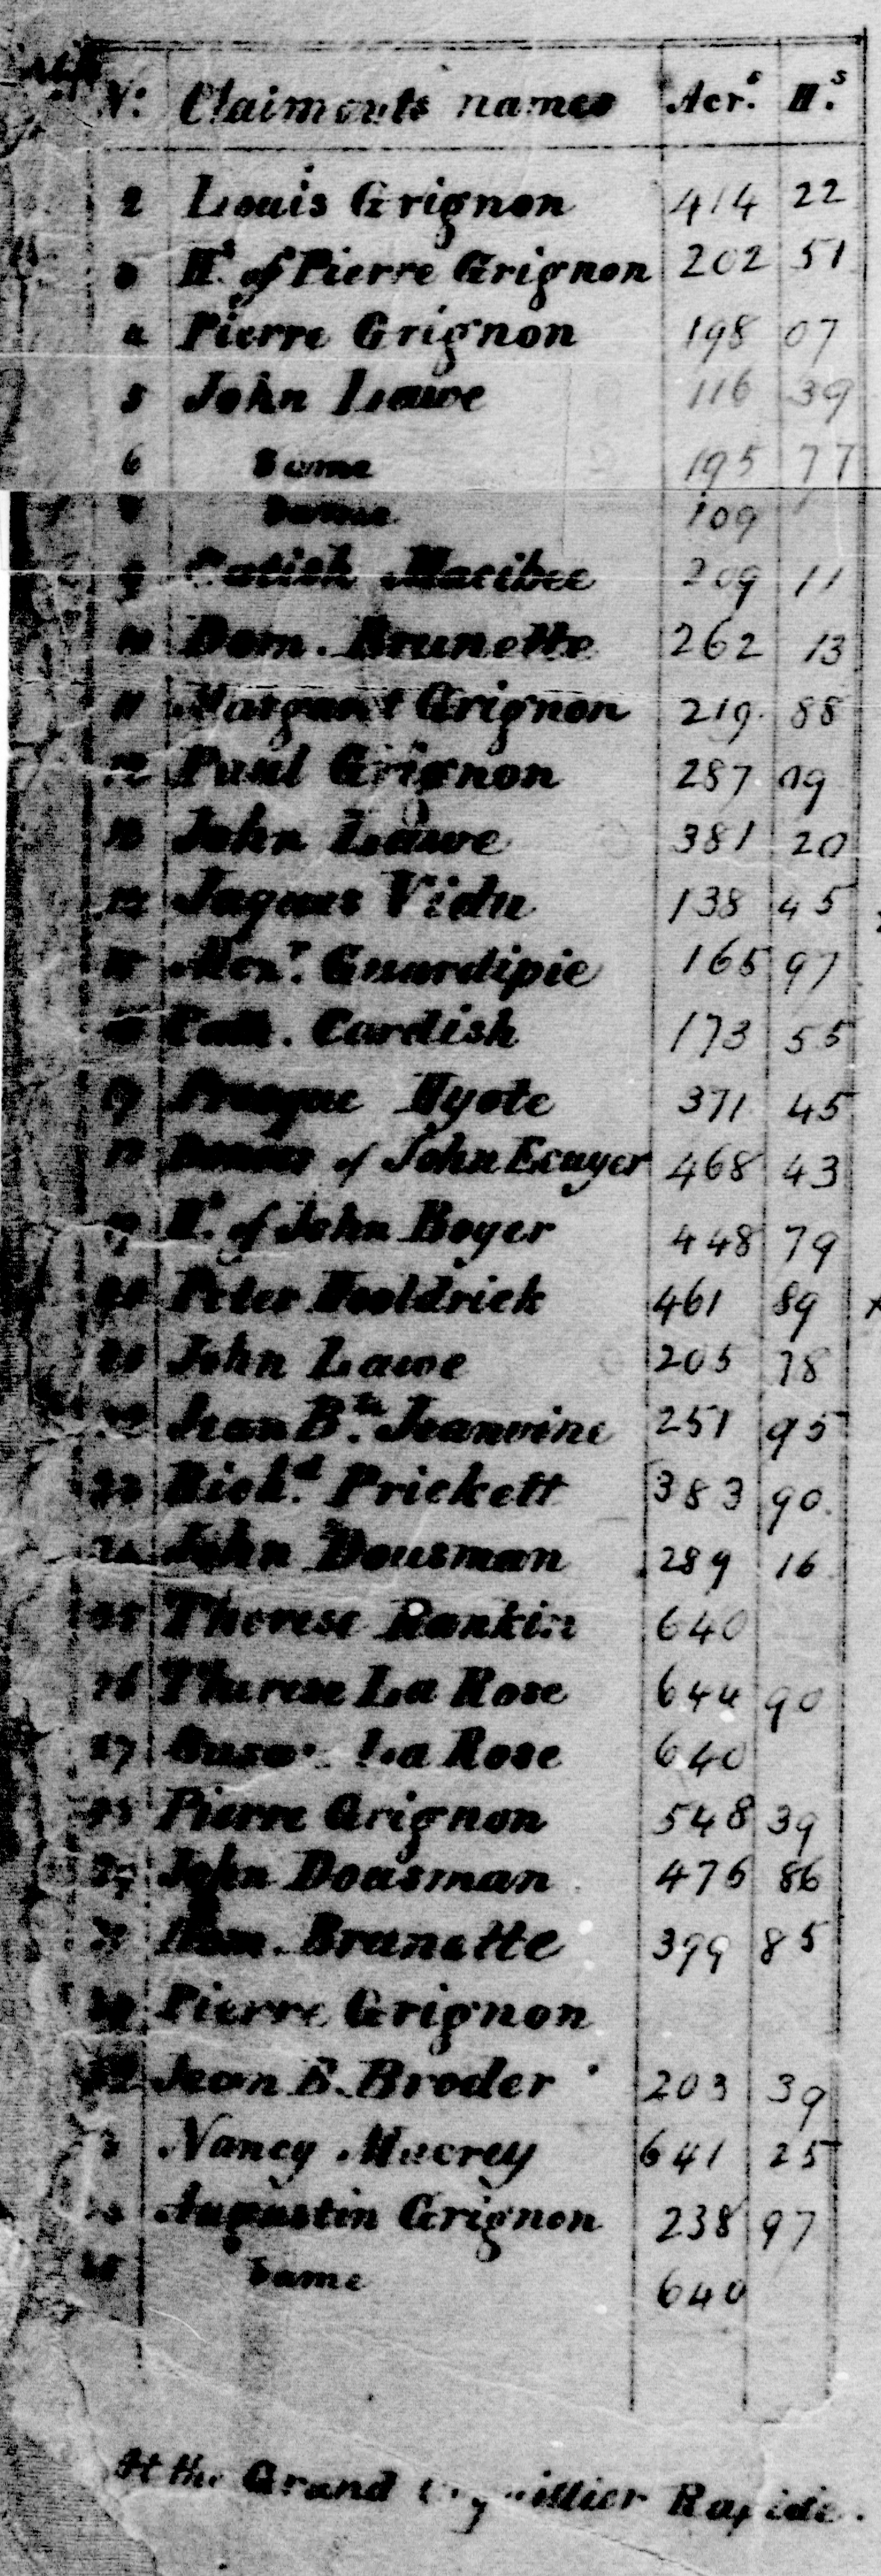 N: Claimonts names Acr.s H.s
2 Louis Grignon 414 22
3 H.s of Pierre Grignon 202 51
4 Pierre Grignon 198 07
5 John Lawe 116 39
6 Same 195 77
Same 109
9 Catish Macibee 209 11
10 Dom. Brunette 262 13
11 Margaret Grignon 219. 88
12 Paul Grignon 287 09
13 John Lawe 381 20
14 Jaques Vidu 138 45
15 Alex.r Guardipie 165 97
Cath. Cardish 173 55
17 Hyote 371 45
18 of John Ecuyer 468 43
19 H.s of John Boyer 448 79
20 Peter Hooldrick 461 89
21 John Lawe 205 78
22 Jean B.te Jeanvine 251 95
23 Rich.d Prickett 383 90
24 John Dousman 289 16
25 Therese Rankin 640
26 Therese La Rose 644 90
27 La Rose 640
Pierre Grignon 548 39
John Dousman 476 86
Dom. Brunette 399 85
Pierre Grignon
Jean B. Broder 203 39
Nancy Macrey 641 25
Augustin Grignon 238 97
Same 640
At the Grand Rapide.